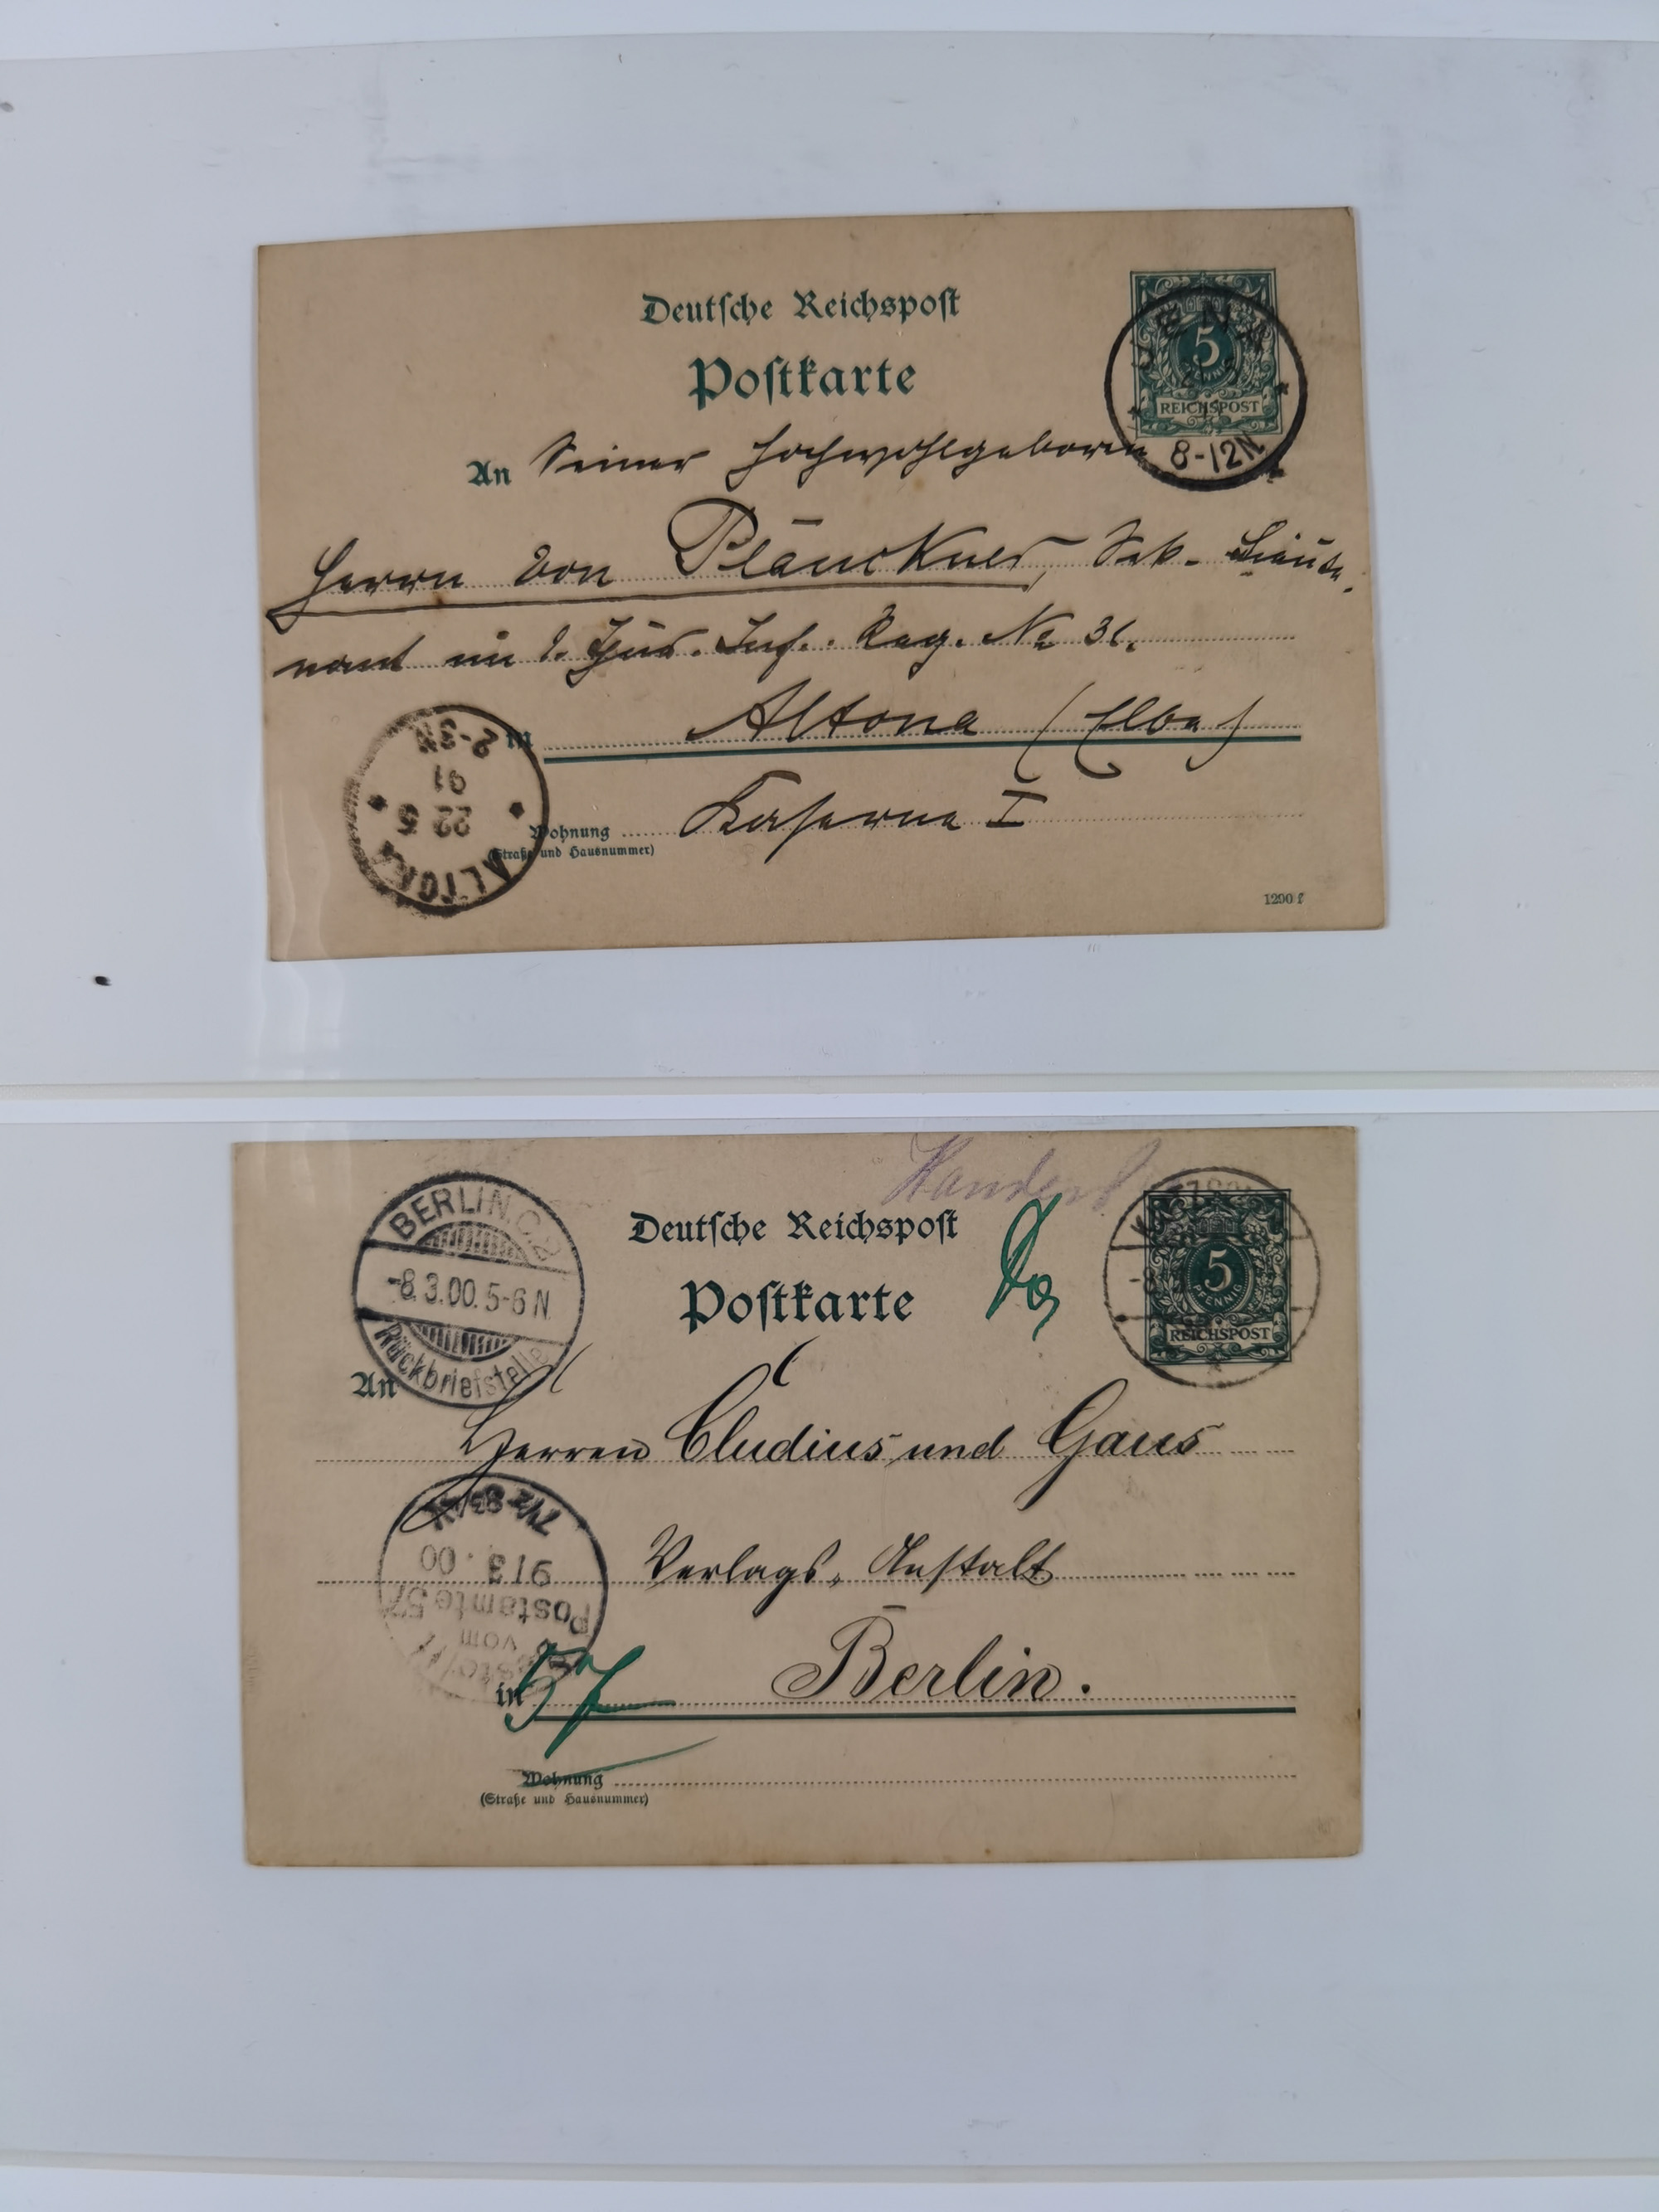 Deutsche Reichspost
Postkarte
5
REICHSPOST
JENA
21 5
91
8-12N
An Seiner Hochwohlgeboren
Herrn von Plänckner, Sek.-Lieute-
nant im I. Thür. Inf. Reg. No 31.
in Altona (Elbe)
Wohnung Kaserne I
(Straße und Hausnummer)
ALTONA
22 5
91
2-3N
1290 f
Deutsche Reichspost
Postkarte
5
PFENNIG
REICHSPOST
BERLIN.C.2
-8.3.00.5-6N.
Rückbriefstelle
An
Herren Cludius und Gaus
Verlags-Anstalt
in Berlin.
57
vom
Postamte 57
9/3.00
7½-8¾V
Wohnung
(Straße und Hausnummer)